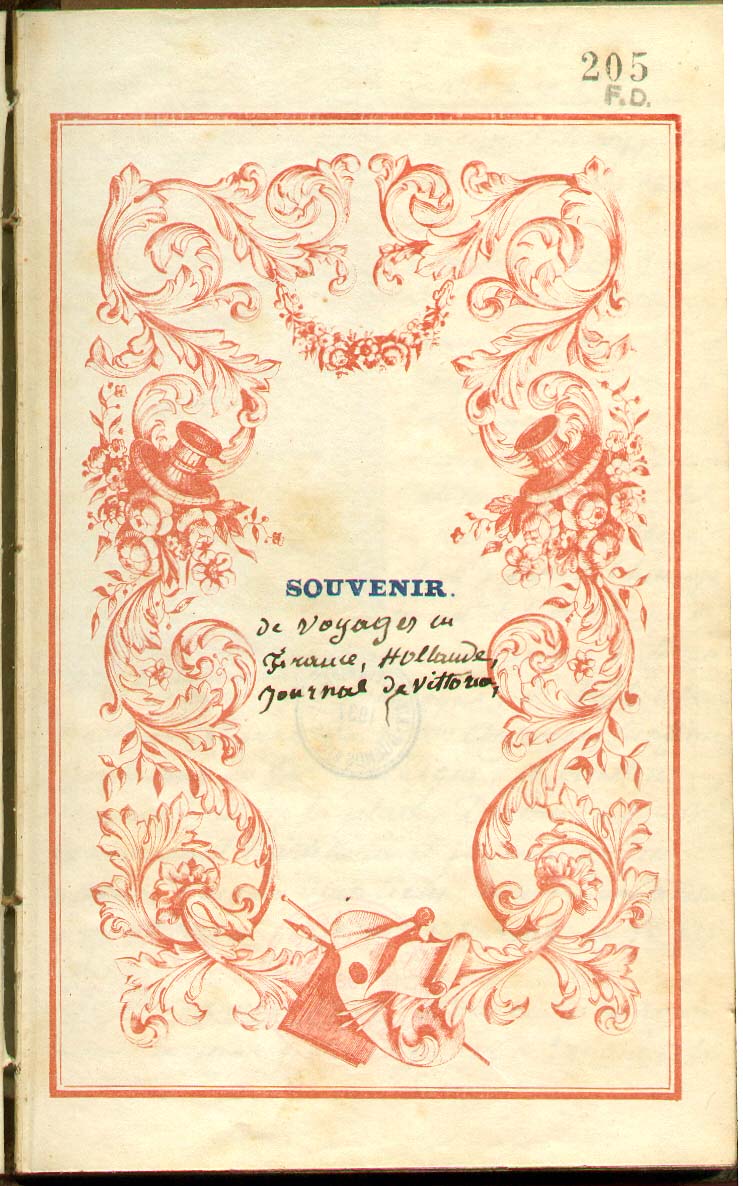 205
F.D.
SOUVENIR.
de voyages en
France, Hollande,
Journal de Vittoria,